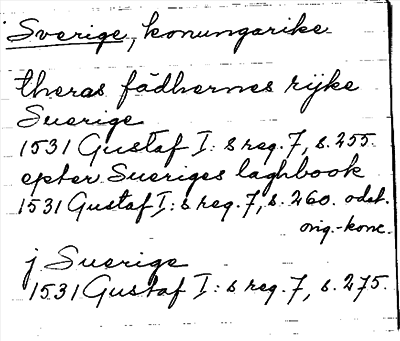 Sverige, konungarike
theras fädhernes rijke
Suerige
1531 Gustaf I:s reg. 7, s. 255.
epter Sueriges laghbook
1531 Gustaf I:s reg. 7, s. 260. odat.
orig.-konc.
j Suerige
1531 Gustaf I:s reg. 7, s. 275.